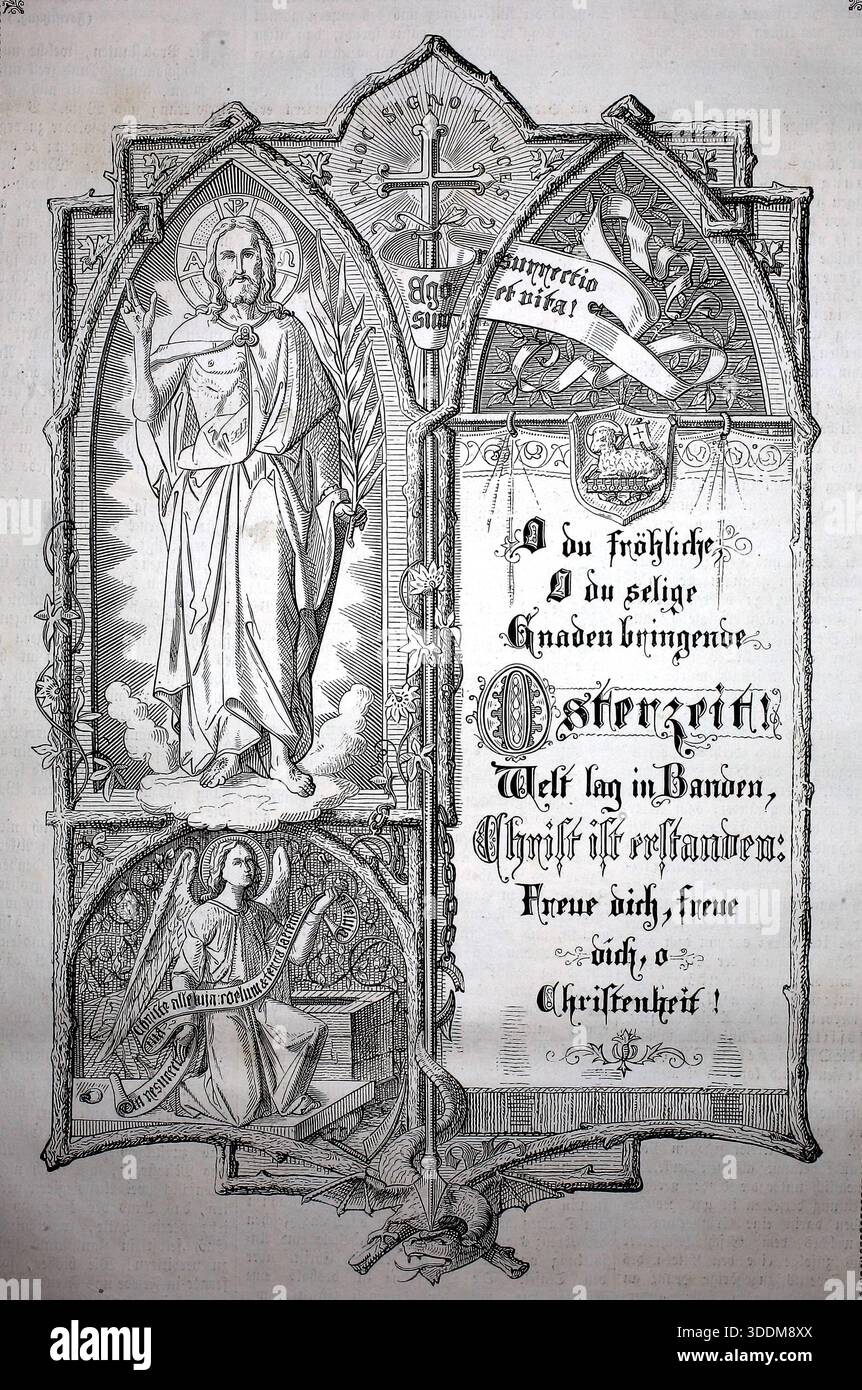 IN HOC SIGNO VINCES
Α Ω
Ego
sum
resurrectio
et vita!
O du fröhliche,
O du selige
Gnaden bringende
Osterzeit!
Welt lag in Banden,
Christ ist erstanden:
Freue dich, freue
dich, o
Christenheit!
Christe alleluja: coelum & terra
alamy
Image ID: 3DDM8XX
www.alamy.com